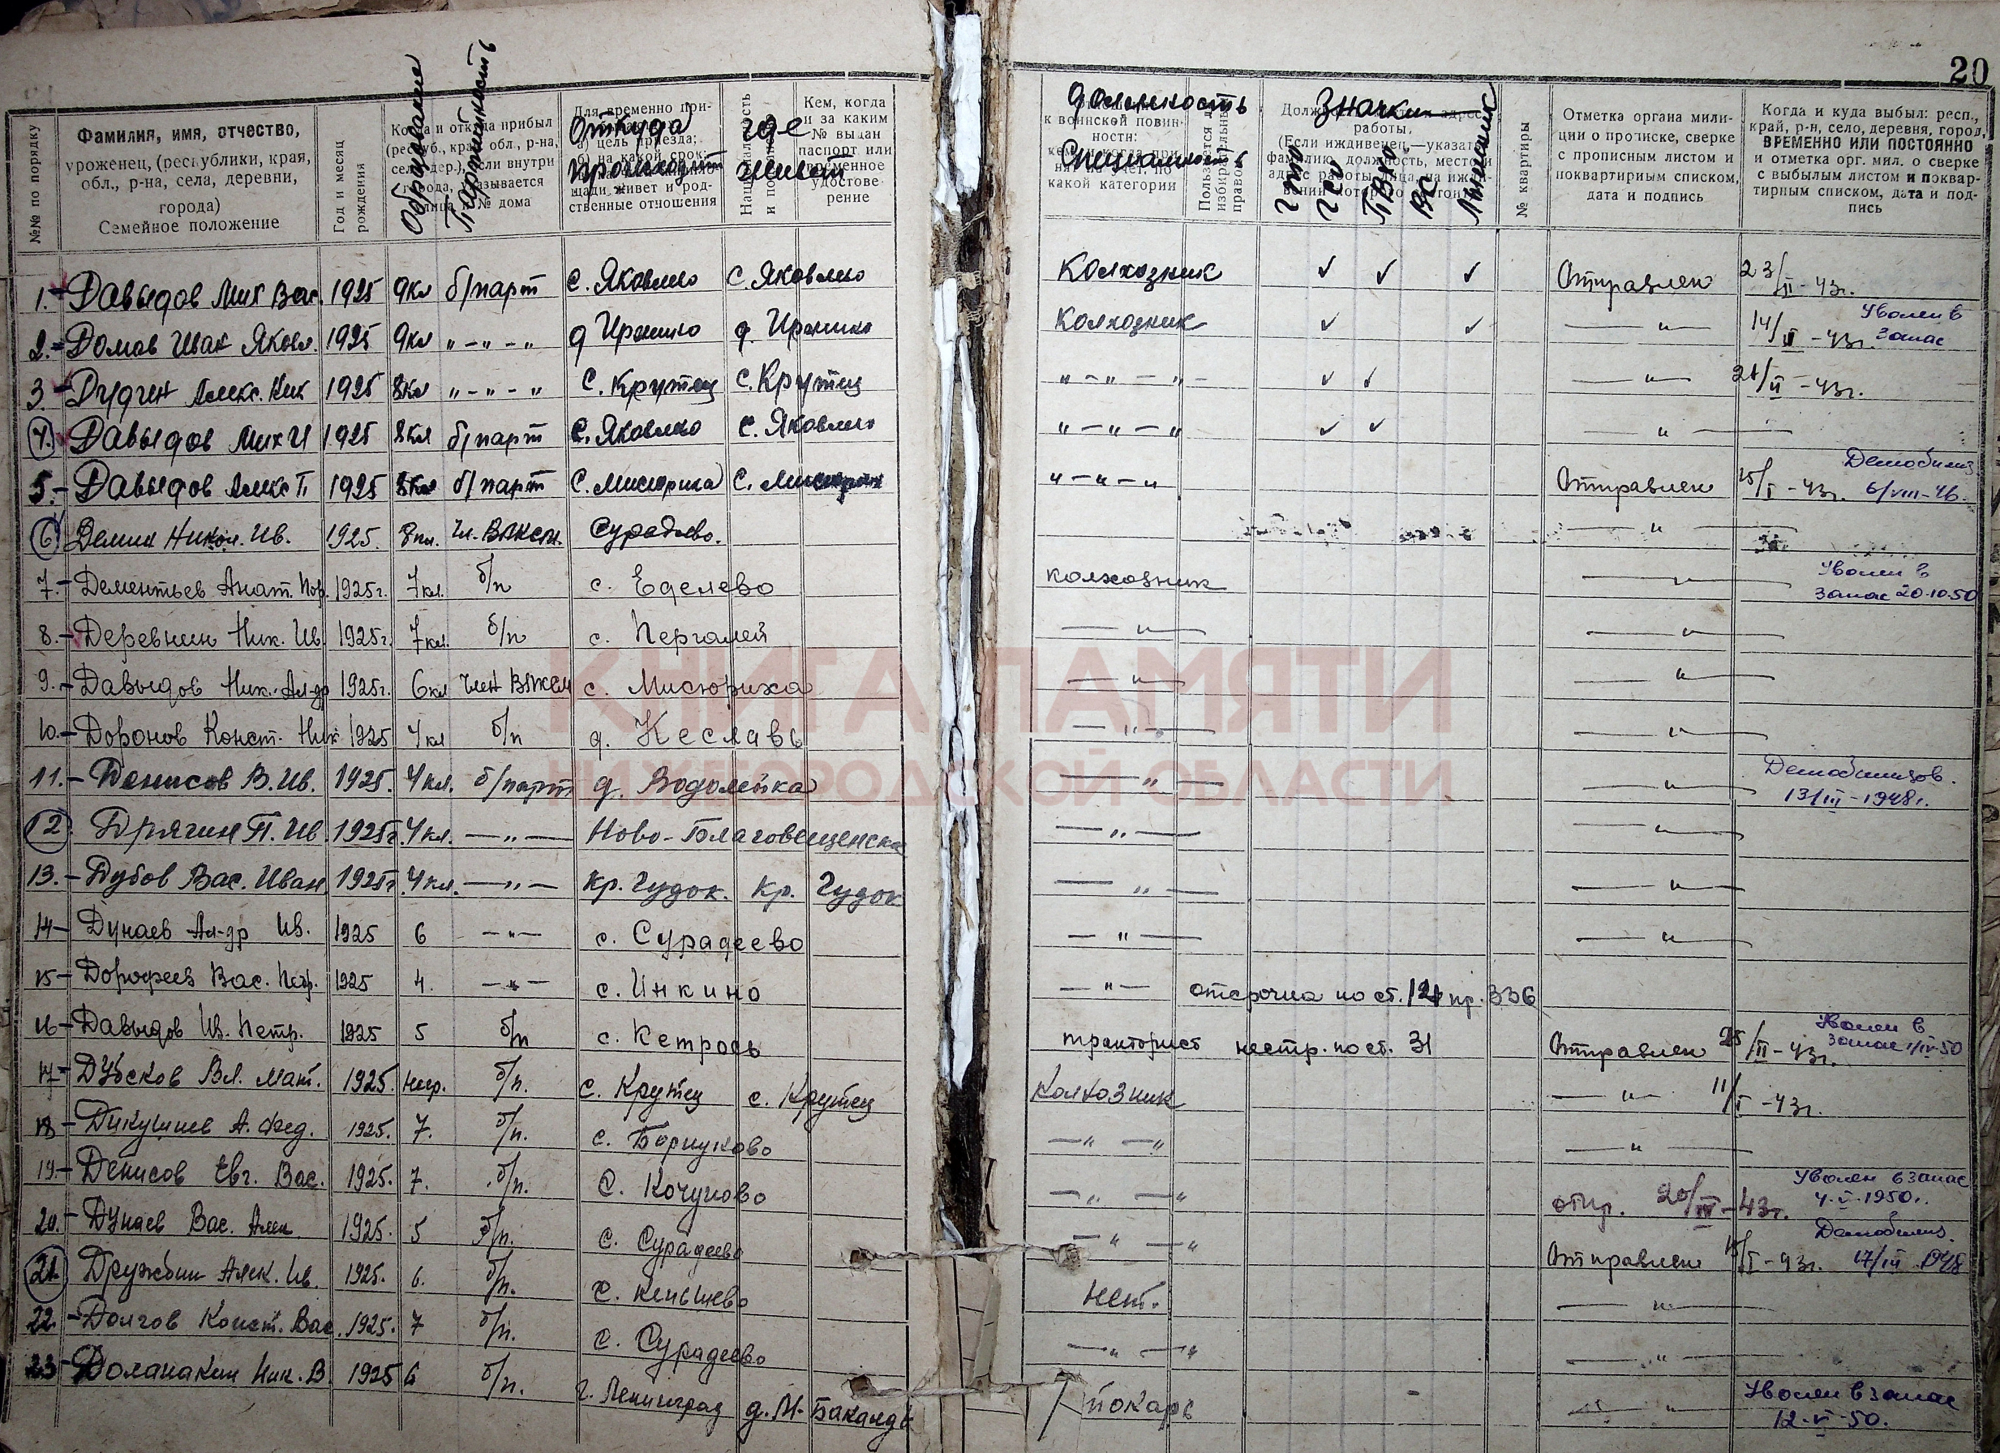 20
№№ по порядку
Фамилия, имя, отчество,
уроженец, (республики, края,
обл., р-на, села, деревни,
города)
Семейное положение
Год и месяц
рождения
Образование
Партийность
откуда
происходит
где
живет
Кем, когда
и за каким
№ выдан
паспорт или
временное
удостове-
рение
должность
Специальность
Значки
ГТО
ГСО
ПВХО
ВС
Лыжник
№ квартиры
Отметка органа мили-
ции о прописке, сверке
с прописным листом и
поквартирным списком,
дата и подпись
Когда и куда выбыл: респ.,
край, р-н, село, деревня, город,
ВРЕМЕННО ИЛИ ПОСТОЯННО
и отметка орг. мил. о сверке
с выбылым листом и поквар-
тирным списком, дата и под-
пись
1.- Давыдов Мих Вас. 1925 9кл б/парт с. Яковлево с. Яковлево Колхозник ✓ ✓ ✓ Отправлен 23/II-43г.
2.- Домов Иван Яковл. 1925 9кл "-"-" д Иржино д. Иржино Колхозник ✓ ✓ —"— 14/II-43г. Уволен в запас
3.- Дудин Алекс. Ник 1925 8кл "-"-" с. Крутец с. Крутец "-"-"- ✓ ✓ —"— 21/II-43г.
4. Давыдов Мих И 1925 8кл б/парт с. Яковлево с. Яковлево "-"-" ✓ ✓ —"—
5.- Давыдов Алекс П 1925 8кл б/парт с. Мисюриха с. Мисюриха "-"-" Отправлен 15/I-43г. Демобилиз 6/VIII-46.
6 Демин Никол. Ив. 1925. 8кл. Чл. ВЛКСМ. Сурадеево. —"—
7.- Дементьев Анат. 1925г. 7кл. б/п с. Еделево колхозник —"— Уволен в запас 20.10.50
8.- Деревнин Ник. Ив 1925г. 7кл. б/п с. Пергалей —"— —"—
9.- Давыдов Ник. Ал-др 1925г. 6кл член ВЛКСМ с. Мисюриха —"— —"—
10.- Доронов Конст. Ник 1925 4кл б/п д. Кеславь —"— —"—
11.- Денисов В. Ив. 1925. 4кл. б/парт д. Водолейка —"— —"— Демобилизов. 13/III-1948г.
12 Дрягин П. Ив 1925г. 4кл. —"— Ново-Благовещенска —"— —"—
13.- Дубов Вас. Иван 1925г 4кл. —"— Кр. Гудок. Кр. Гудок —"— —"—
14- Дунаев Ал-др Ив. 1925 6 —"— с. Сурадеево —"— —"—
15- Дорофеев Вас. Петр. 1925 4. —"— с. Инкино —"— отсрочка по ст. 124 пр. 336
16- Давыдов Ив. Петр. 1925 5 б/п с. Кетрось тракторист нестр. по ст. 31 Отправлен 25/II-43г. Уволен в запас 1/IV-50
17- Дубсков Вл. Мат. 1925. негр. б/п. с. Крутец с. Крутец Колхозник —"— 11/I-43г.
18- Дикушиев А. Фед. 1925. 7. б/п. с. Борнуково —"— —"—
19.- Денисов Евг. Вас. 1925. 7. б/п. с. Кочуново —"— отпр. 20/III-43г. Уволен в запас 4.V.1950г.
20.- Дунаев Вас. Алек. 1925. 5 б/п. с. Сурадеево —"— Отправлен 15/I-43г. Демобилиз. 17/III.1948
21. Дружбин Алек. Ив. 1925. 6. б/п. с. Кенышево нет. —"—
22.- Долгов Конст. Вас. 1925. 7 б/п. с. Сурадеево —"— —"—
23- Доманакин Ник. В. 1925 6 б/п. г. Ленинград д. М. Бакалды пекарь - —"— Уволен в запас 12-VI-50.
КНИГА ПАМЯТИ
НИЖЕГОРОДСКОЙ ОБЛАСТИ